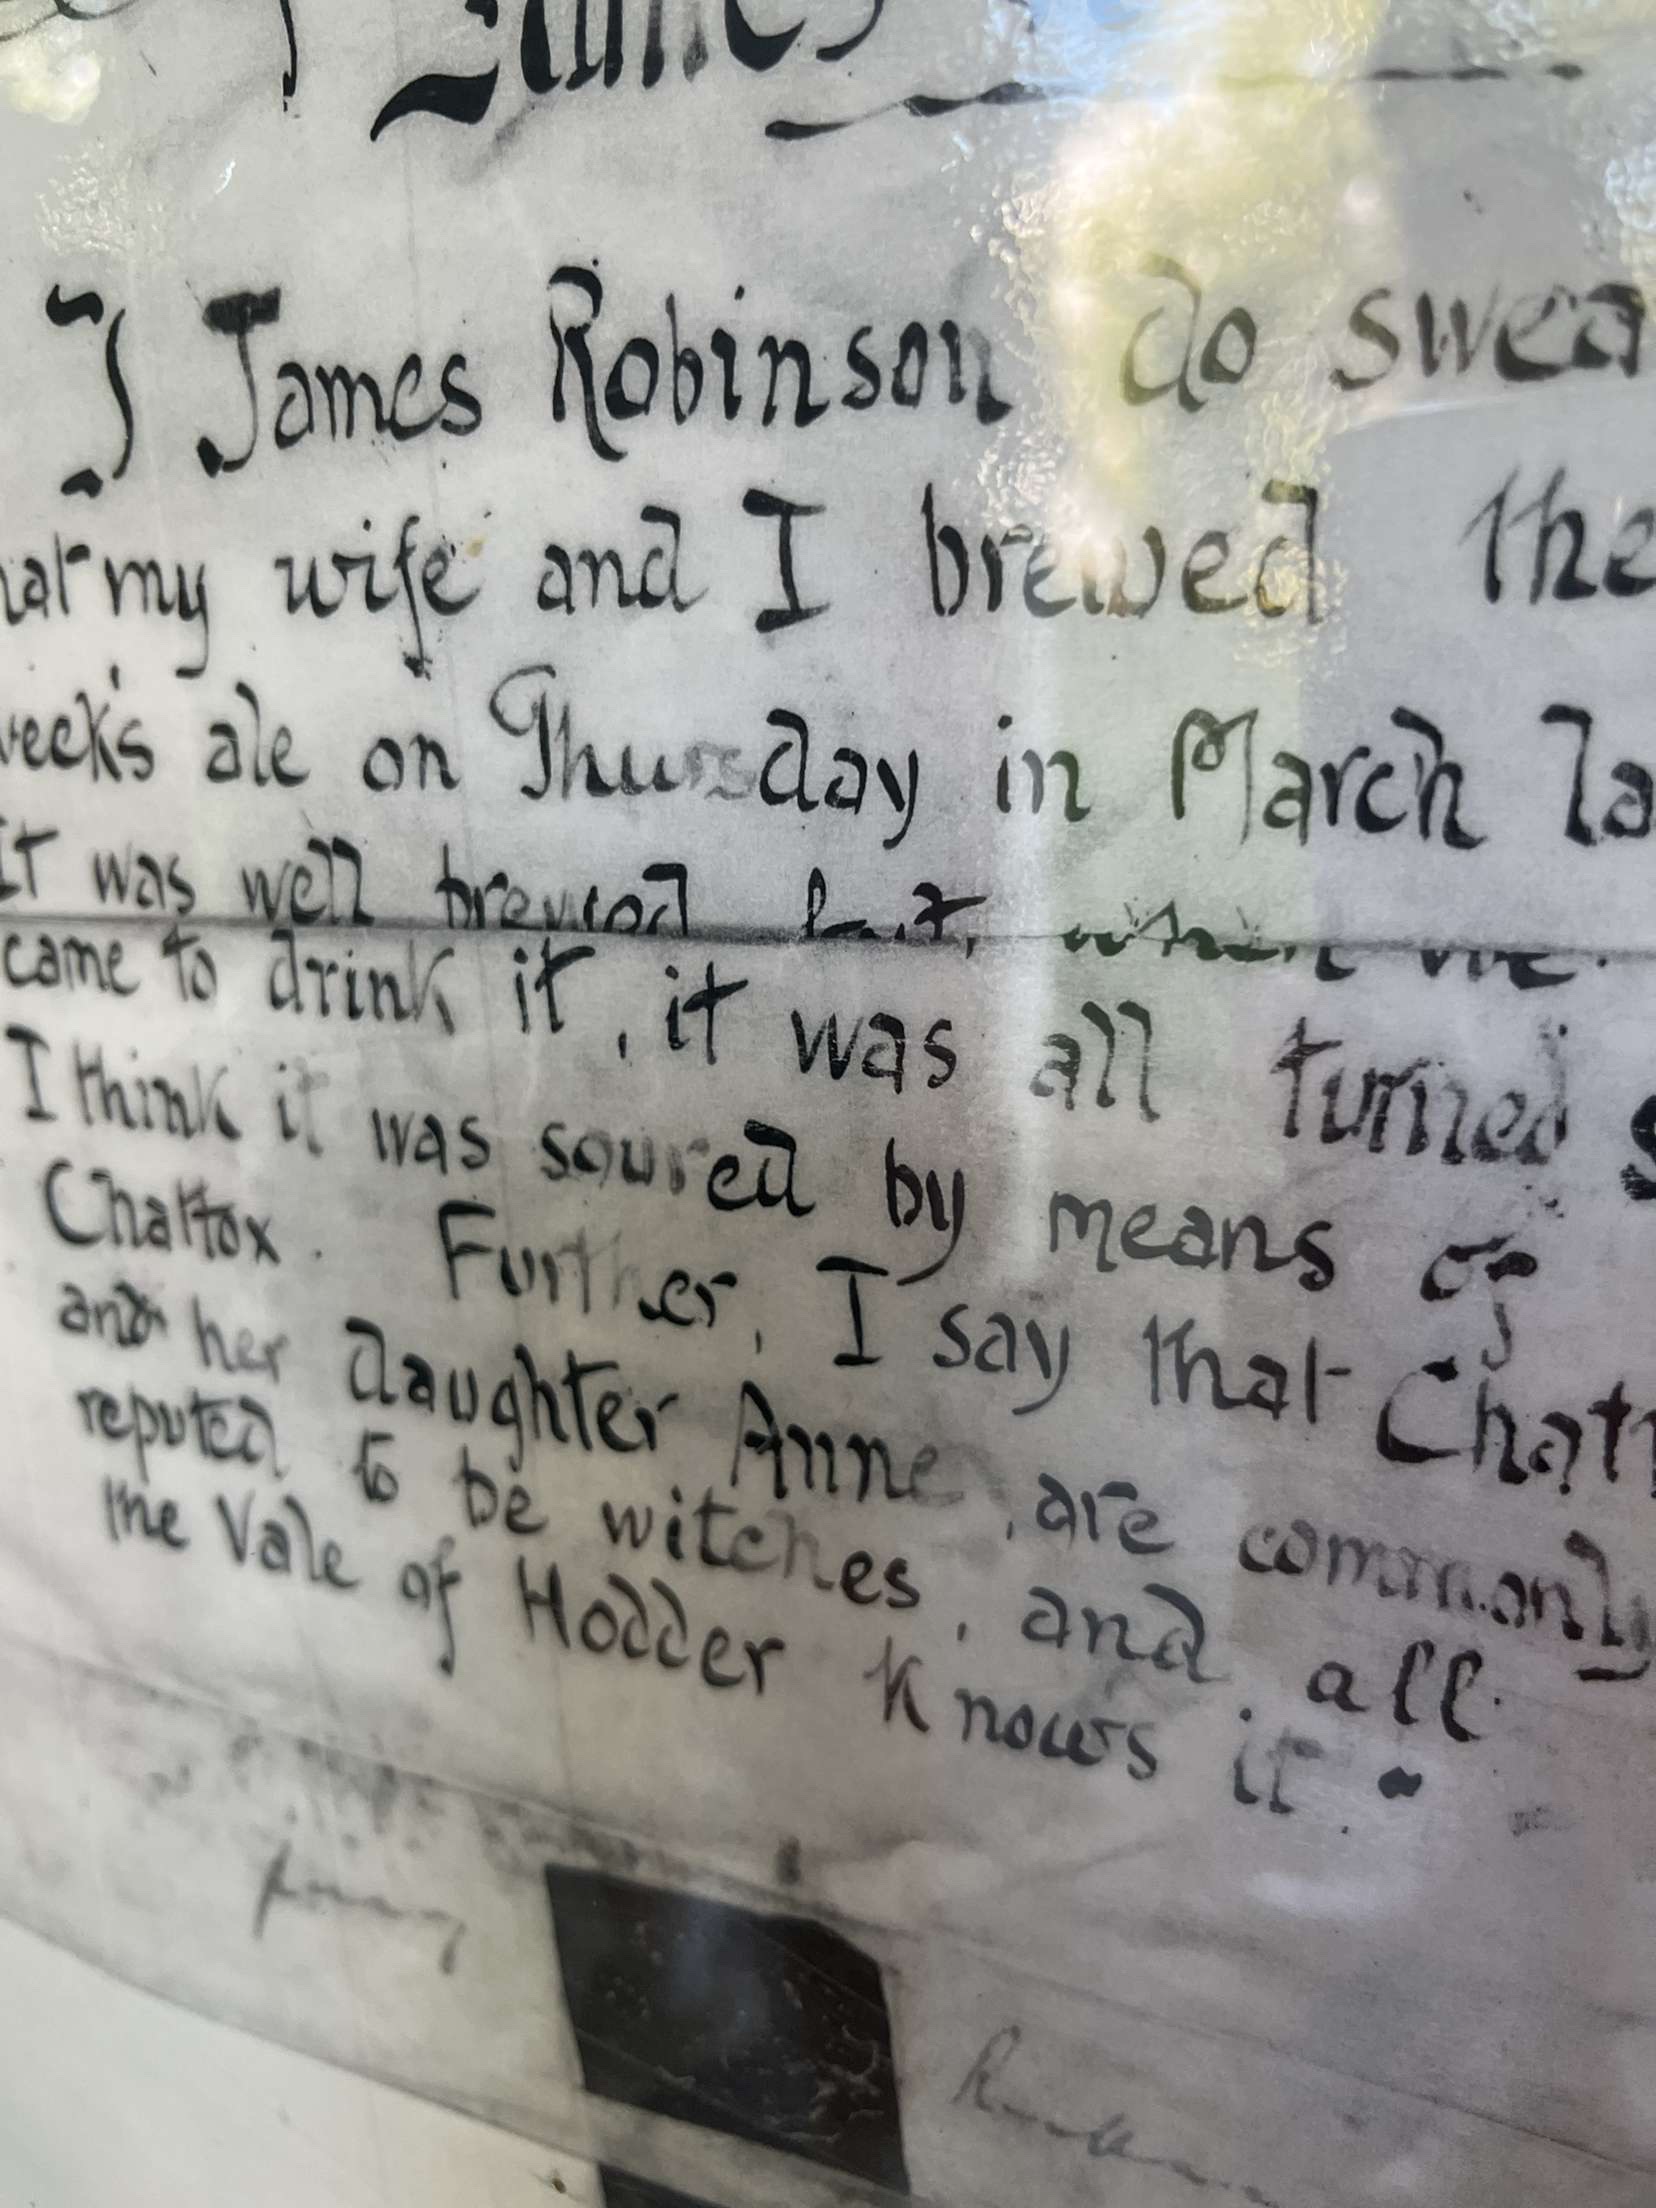 James
I James Robinson do swea
hat my wife and I brewed the
week's ale on Thursday in March la
It was well brewed but, when we
came to drink it, it was all turned s
I think it was soured by means of
Chattox. Further, I say that Chatt
and her daughter Anne, are commonly
reputed to be witches, and all
the Vale of Hodder knows it.